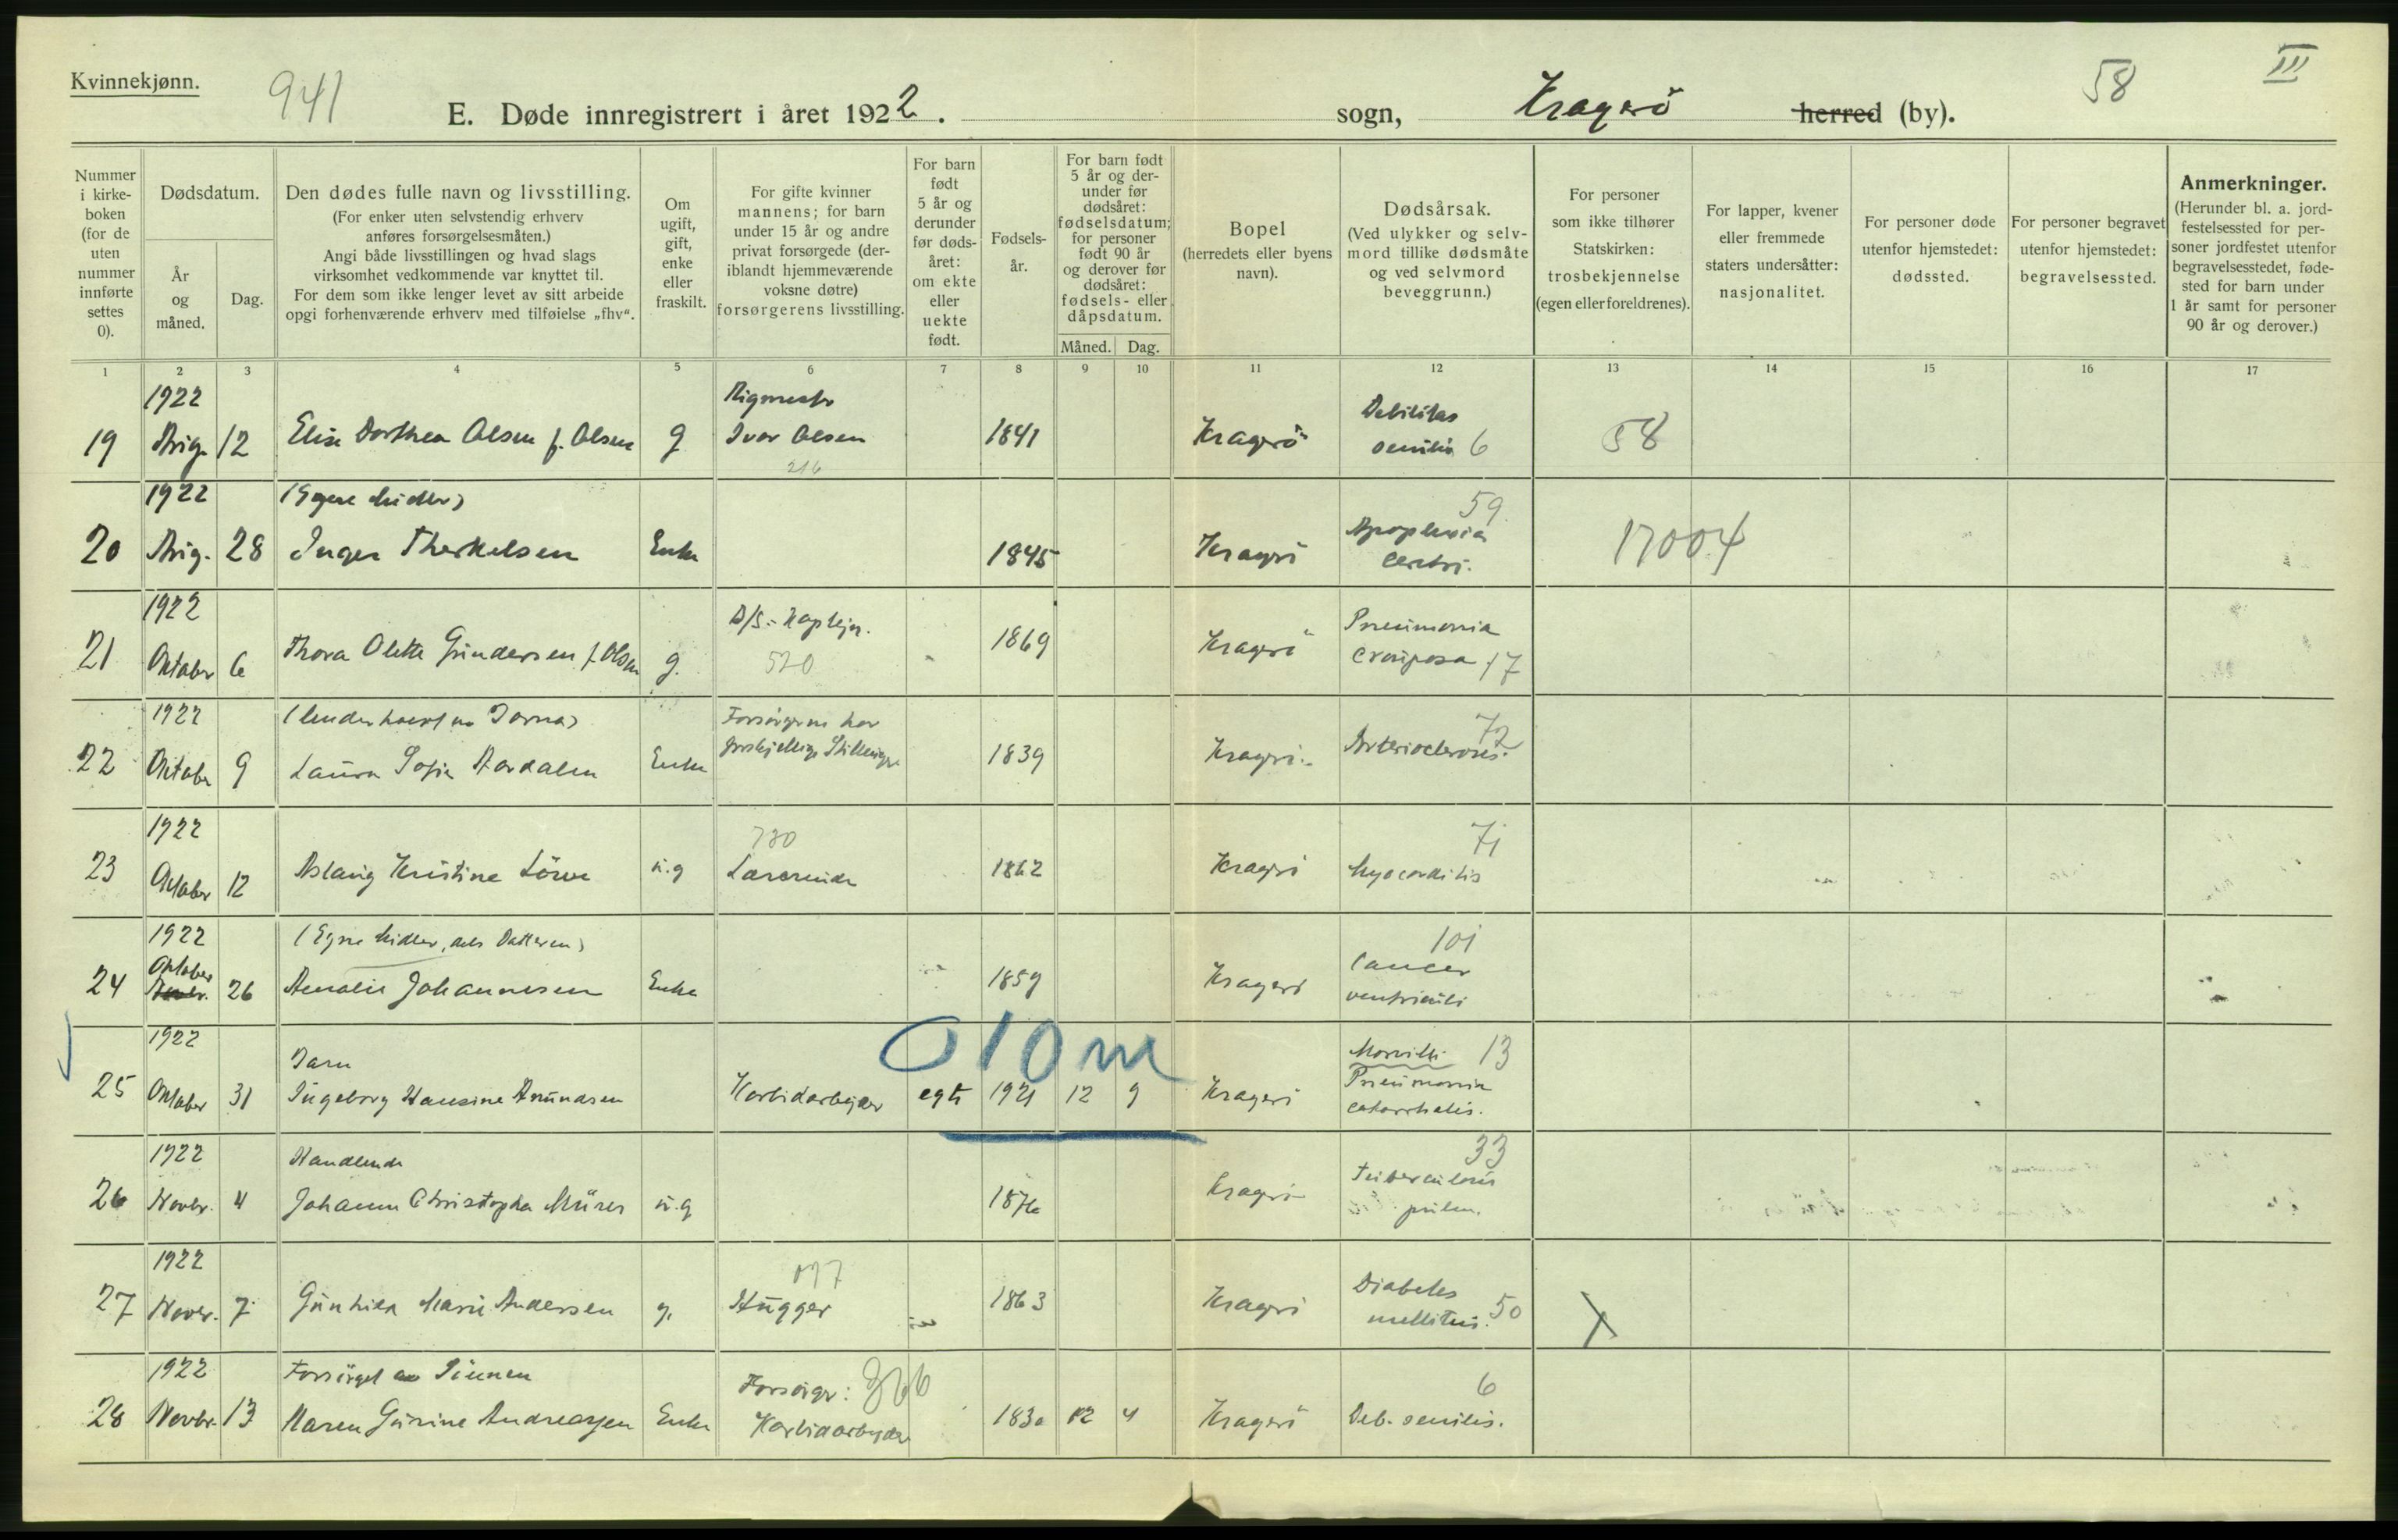 Kvinnekjønn.
941
58
III
E. Døde innregistrert i året 1922. sogn, Kragerö herred (by).
Nummer i kirke-boken (for de uten nummer innførte settes 0).
Dødsdatum.
År og måned.
Dag.
Den dødes fulle navn og livsstilling.
(For enker uten selvstendig erhverv anføres forsørgelsesmåten.)
Angi både livsstillingen og hvad slags virksomhet vedkommende var knyttet til.
For dem som ikke lenger levet av sitt arbeide opgi forhenværende erhverv med tilføielse „fhv“.
Om ugift, gift, enke eller fraskilt.
For gifte kvinner mannens; for barn under 15 år og andre privat forsørgede (der-iblandt hjemmeværende voksne døtre) forsørgerens livsstilling.
For barn født 5 år og derunder før døds-året: om ekte eller uekte født.
Fødsels-år.
For barn født 5 år og der-under før dødsåret: fødselsdatum; for personer født 90 år og derover før dødsåret: fødsels- eller dåpsdatum.
Måned.
Dag.
Bopel
(herredets eller byens navn).
Dødsårsak.
(Ved ulykker og selv-mord tillike dødsmåte og ved selvmord beveggrunn.)
For personer som ikke tilhører Statskirken: trosbekjennelse (egen eller foreldrenes).
For lapper, kvener eller fremmede staters undersåtter: nasjonalitet.
For personer døde utenfor hjemstedet: dødssted.
For personer begravet utenfor hjemstedet: begravelsessted.
Anmerkninger.
(Herunder bl. a. jord-festelsessted for per-soner jordfestet utenfor begravelsesstedet, føde-sted for barn under 1 år samt for personer 90 år og derover.)
1 2 3 4 5 6 7 8 9 10 11 12 13 14 15 16 17
1922 Rigmester Debilitas
19 Aug. 12 Elise Dorthea Olsen f. Olsen g Ivar Olsen 1841 Kragerö senilis 6 58
216
1922 (Egne Midler) 59
20 Aug. 28 Inger Therkelsen Enke 1845 Kragerö Apoplexia cerebri. 17004
1922 D/S.- Kaptejn. Pneumonia
21 Oktober 6 Thora Olette Gundersen f. Olsen g. 520 1869 Kragerö crouposa 17
1922 (Underholdt av Barna) Forsörgerne har 72
22 Oktober 9 Laura Sofie Aardalen Enke forskjellige Stillinger 1839 Kragerö. Arteriosclerosis.
1922 780 71
23 Oktober 12 Aslaug Kristine Lörve u.g Lærerinde 1862 Kragerö Myocarditis
1922 (Egne Midler, dels Datteren) 101
24 Oktober 26 Amalie Johannesen Enke 1859 Kragerö Cancer ventriculi
1922 Barn 010 m Morbilli 13
25 Oktober 31 Ingeborg Hansine Amundsen Karbidarbejder egte 1921 12 9 Kragerö Pneumonia catarrhalis.
1922 Handlende 33
26 Novbr. 4 Johanne Christopha Mürer u.g 1876 Kragerö Tuberculosis pulm.
1922 077 Diabetes
27 Novbr. 7 Gunhild Marie Andersen g. Hugger 1863 Kragerö mellitus. 50 X
1922 Forsörget av Sönnen Forsörger: 366 6
28 Novbr. 13 Maren Gurine Andreassen Enke Karbidarbejder 1830 12 4 Kragerö Deb. senilis.